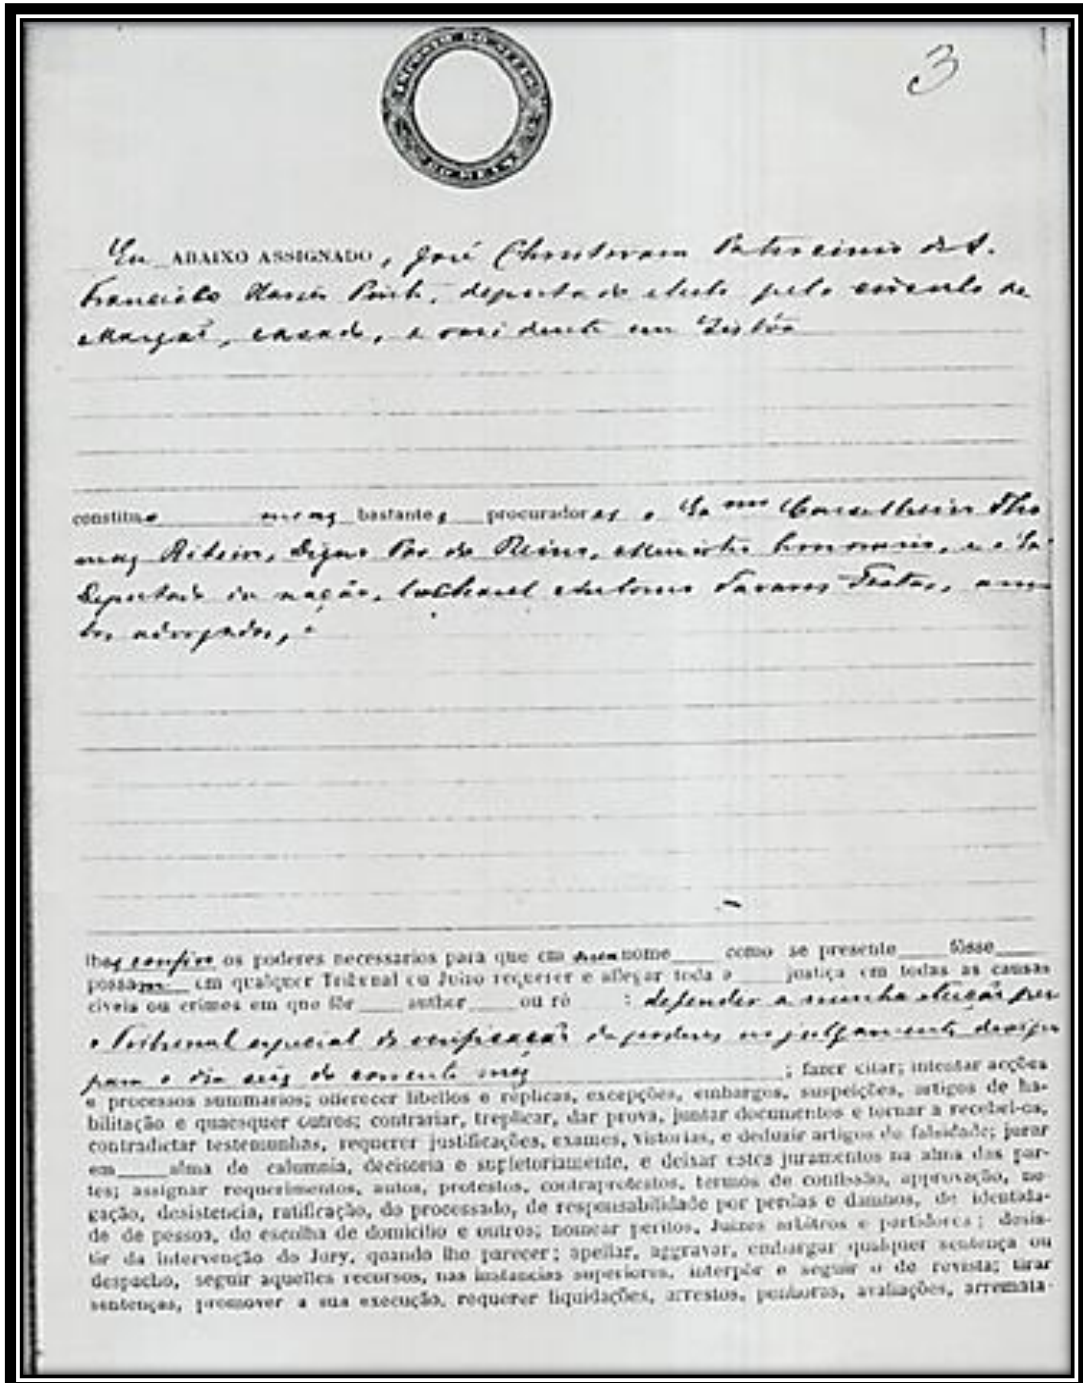 IMPOSTO DO SELLO
REIS
3
Eu ABAIXO ASSIGNADO, José Christovam Patrocinio de S.
Francisco Xavier Pinto, deputado eleito pelo circulo de
Margão, casado, e residente em Lisbôa
constituo meus bastantes procuradores o Exmo Conselheiro Tho
maz Ribeiro, Digno Par do Reino, Ministro honorario, e o Sr
Deputado da nação, bacharel Antonio Tavares Festas, am
bos advogados, e
lhes confiro os poderes necessarios para que em meu nome como se presente fôsse
possam em qualquer Tribunal ou Juizo requerer e allegar toda a justiça em todas as causas
civeis ou crimes em que fôr author ou ré : defender a minha eleição per
o Tribunal especial de verificação de poderes no julgamento
para o dia seis do corrente mez ; fazer citar; intentar acções
e processos summarios; offerecer libellos e réplicas, excepções, embargos, suspeições, artigos de ha-
bilitação e quaesquer outros; contrariar, treplicar, dar prova, juntar documentos e tornar a recebel-os,
contradictar testemunhas, requerer justificações, exames, vistorias, e deduzir artigos de falsidade; jurar
em alma de calumnia, decisoria e supletoriamente, e deixar estes juramentos na alma das par-
tes; assignar requerimentos, autos, protestos, contraprotestos, termos de confissão, approvação, ne-
gação, desistencia, ratificação, do processado, de responsabilidade por perdas e damnos, de identida-
de de pessoa, de escolha de domicilio e outros; nomear peritos, Juizes arbitros e partidores; desis-
tir da intervenção do Jury, quando lhe parecer; apellar, aggravar, embargar qualquer sentença ou
despacho, seguir aquelles recursos, nas instancias superiores, interpôr e seguir o de revista; tirar
sentenças, promover a sua execução, requerer liquidações, arrestos, penhoras, avaliações, arremata-